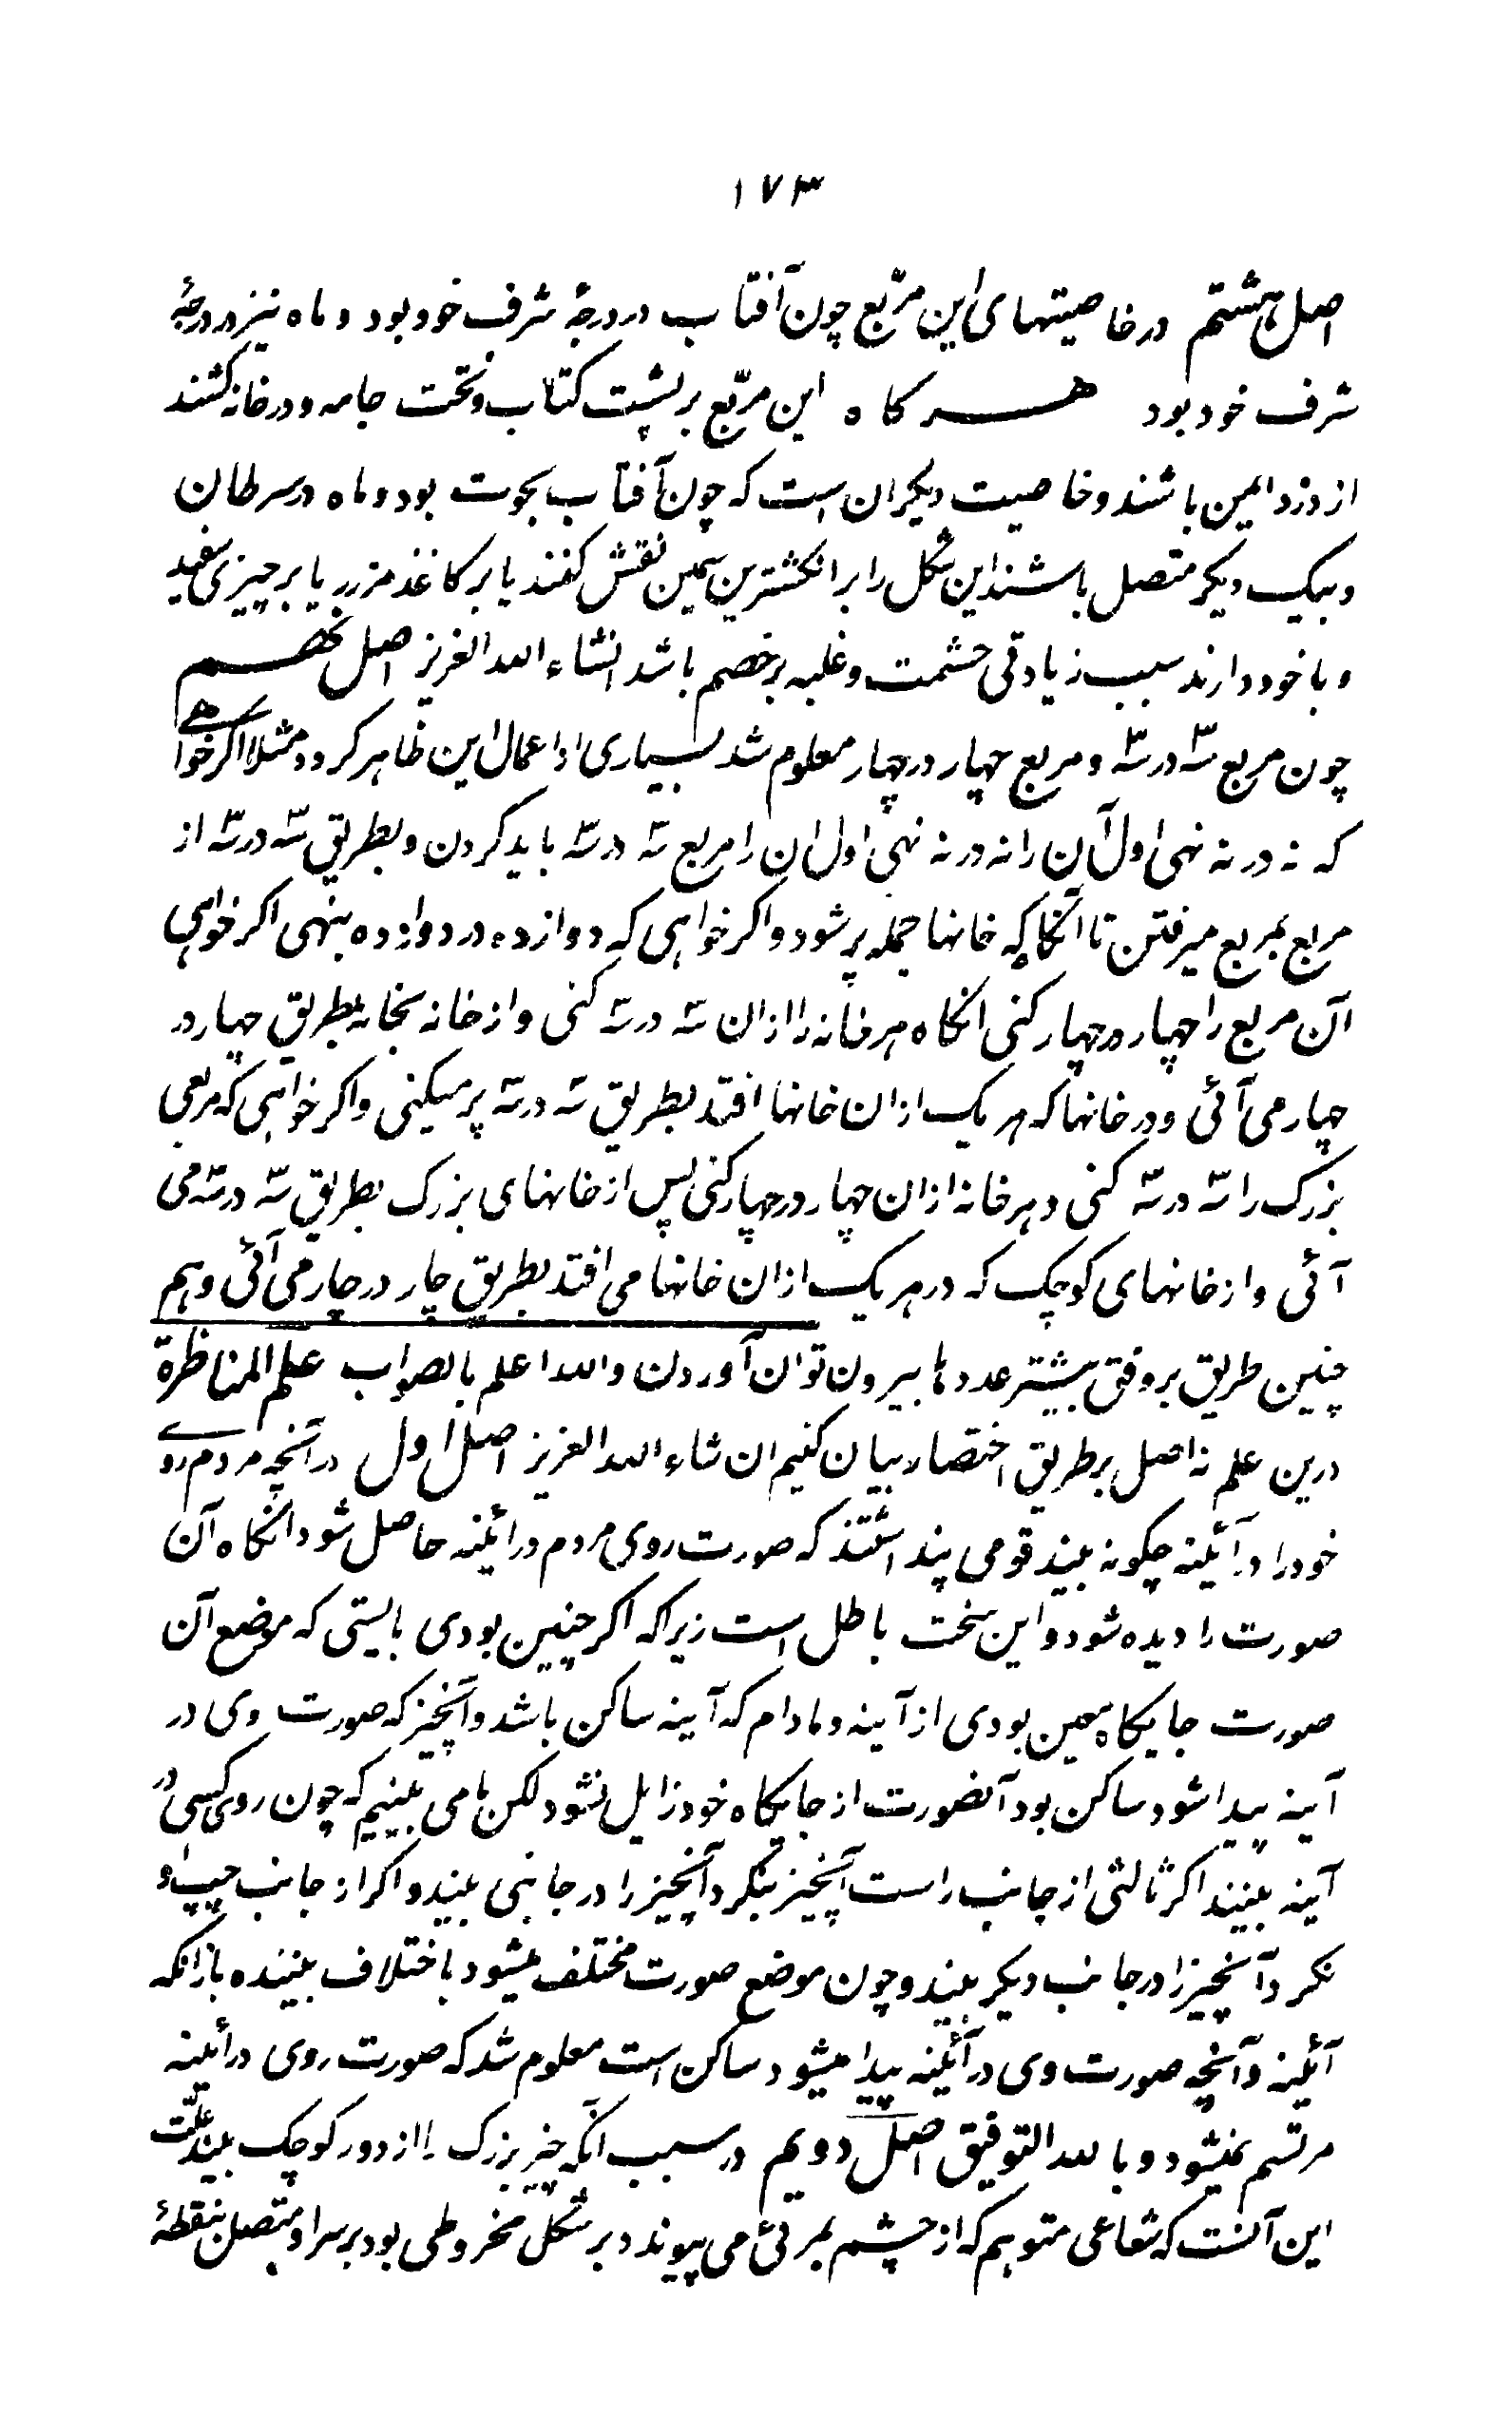 ۱۷۳
اصل هشتم در خاصیتهای این مربّع چون آفتاب در درجهٔ شرف خود بود و ماه نیز در درجهٔ
شرف خود بود هرکاه این مربّع بر پشت کتاب و تخت جامه و در خانه کشند
از دزد ایمن باشند و خاصیت دیکر ان است که چون آفتاب بحوت بود و ماه در سرطان
و بیک دیکر متصل باشند این شکل را بر انکشترین سیمین نقش کنند یا بر کاغذ مزرر یا بر چیزی سفید
و با خود دارند سبب زیادتی حشمت و غلبه بر خصم باشد انشاء الله العزیز اصل نهم
چون مربع سه در سه و مربع چهار در چهار معلوم شد بسیاری از اعمال این ظاهر کردد مثلا اکر خواهی
که نه در نه نهی اول آن را نه در نه نهی اول ان را مربع سه در سه باید کردن و بطریق سه در سه از
مربع بمربع میرفتن تا آنکاه که خانها جمله پر شود و اکر خواهی که دوازده در دوازده بنهی اکر خواهی
آن مربع را چهار در چهار کنی انکاه هر خانه را از ان سه در سه کنی و از خانه بخانه بطریق چهار در
چهار می آئی و در خانها که هر یک از ان خانها افتد بطریق سه در سه پر میکنی و اکر خواهی که مربعی
بزرک را سه در سه کنی و هر خانه از ان چهار در چهار کنی پس از خانهای بزرک بطریق سه در سه می
آئی و از خانهای کوچک که در هر یک از ان خانها می افتد بطریق چار در چار می آئی و هم
چنین طریق بر وفق بیشتر عددها بیرون توان آوردن والله اعلم بالصواب علم المناظرة
درین علم نه اصل بر طریق اختصار بیان کنیم ان شاء الله العزیز اصل اول در آنچه مردم روی
خود را در آئینه چکونه بیند قومی پنداشتند که صورت روی مردم در ائینه حاصل شود انکاه آن
صورت را دیده شود و این سخت باطل است زیرا که اکر چنین بودی بایستی که موضع آن
صورت جایکاه معین بودی از آینه و مادام که آینه ساکن باشد و آنچیز که صورت وی در
آینه پیدا شود ساکن بود آنصورت از جایکاه خود زایل نشود لکن ما می بینیم که چون روی کسی در
آینه بینند اکر ثالثی از جانب راست آنچیز بنکرد آنچیز را در جانبی بیند و اکر از جانب چپ او
نکرد آنچیز را در جانب دیکر بیند و چون موضع صورت مختلف میشود باختلاف بیننده باز انکه
آئینه و آنچه صورت وی در آئینه پیدا میشود ساکن است معلوم شد که صورت روی در ائینه
مرتسم نمیشود و بالله التوفیق اصل دویم در سبب آنکه چیز بزرک را از دور کوچک بیند علّت
این آنست که شعاعی متوهم که از چشم بمرئی می پیوندد بر شکل مخروطی بود بر سر او متصل بنقطهٔ